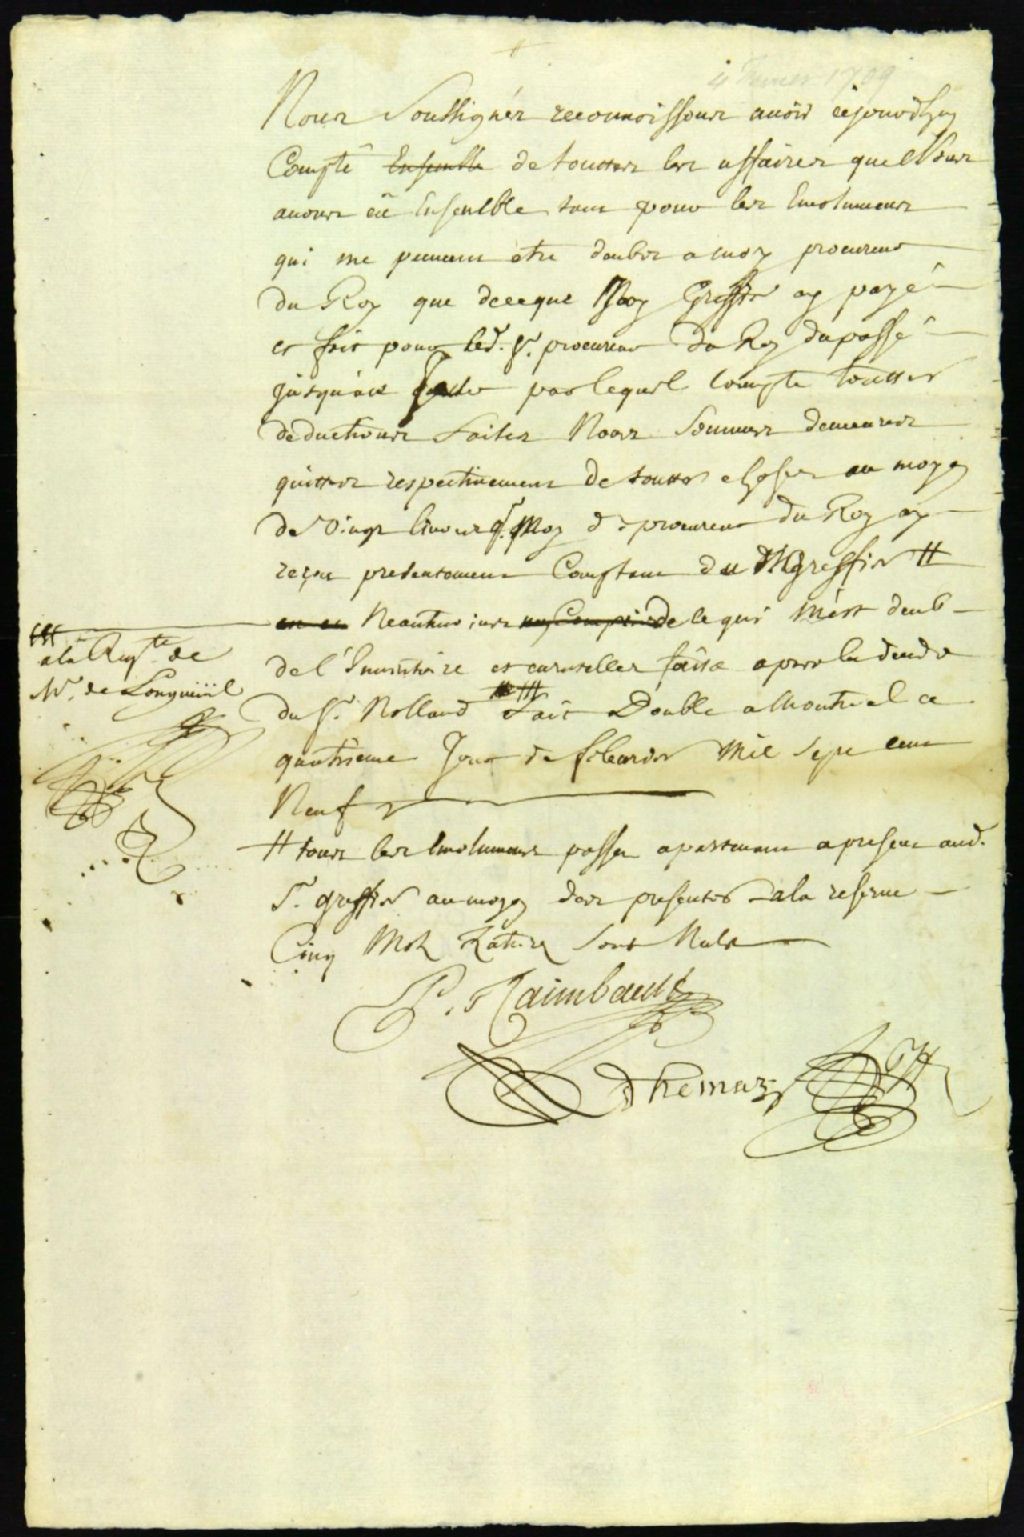 4 Fevrier 1709
Nous Soussignés reconnoissons avoir cejourdhuy
Compté Ensemble de touttes les affaires que Nous
avons eü Ensemble tant pour les Emolumens
qui me peuvent etre deubs a moy procureur
du Roy que de ce que Moy Greffier ay payé
et fait pour led. Sr. procureur du Roy du passé
jusqu'au par lequel Compte touttes
deductions faites Nous Sommes demeurez
quittes respectivement de touttes choses au moyen
de Vingt livres q. Moy d. procureur du Roy ay
reçue presentement Comptant du d. Greffier #
Neantmoins de ce qui m'est deub
de l'Inventaire et faitte apres le deceds
du Sr. Rolland ## fait Double a Montreal ce
quatrieme Jour de febvrier Mil Sept cent
Neuf
a la Reqte. de
Mr. de Longueuil
# tous les Emolumens passez apartenant a present aud.
Sr. greffier au moyen des presentes a la reserve
Cinq Mots Raturez sont Nuls
P. Raimbault
Adhemar